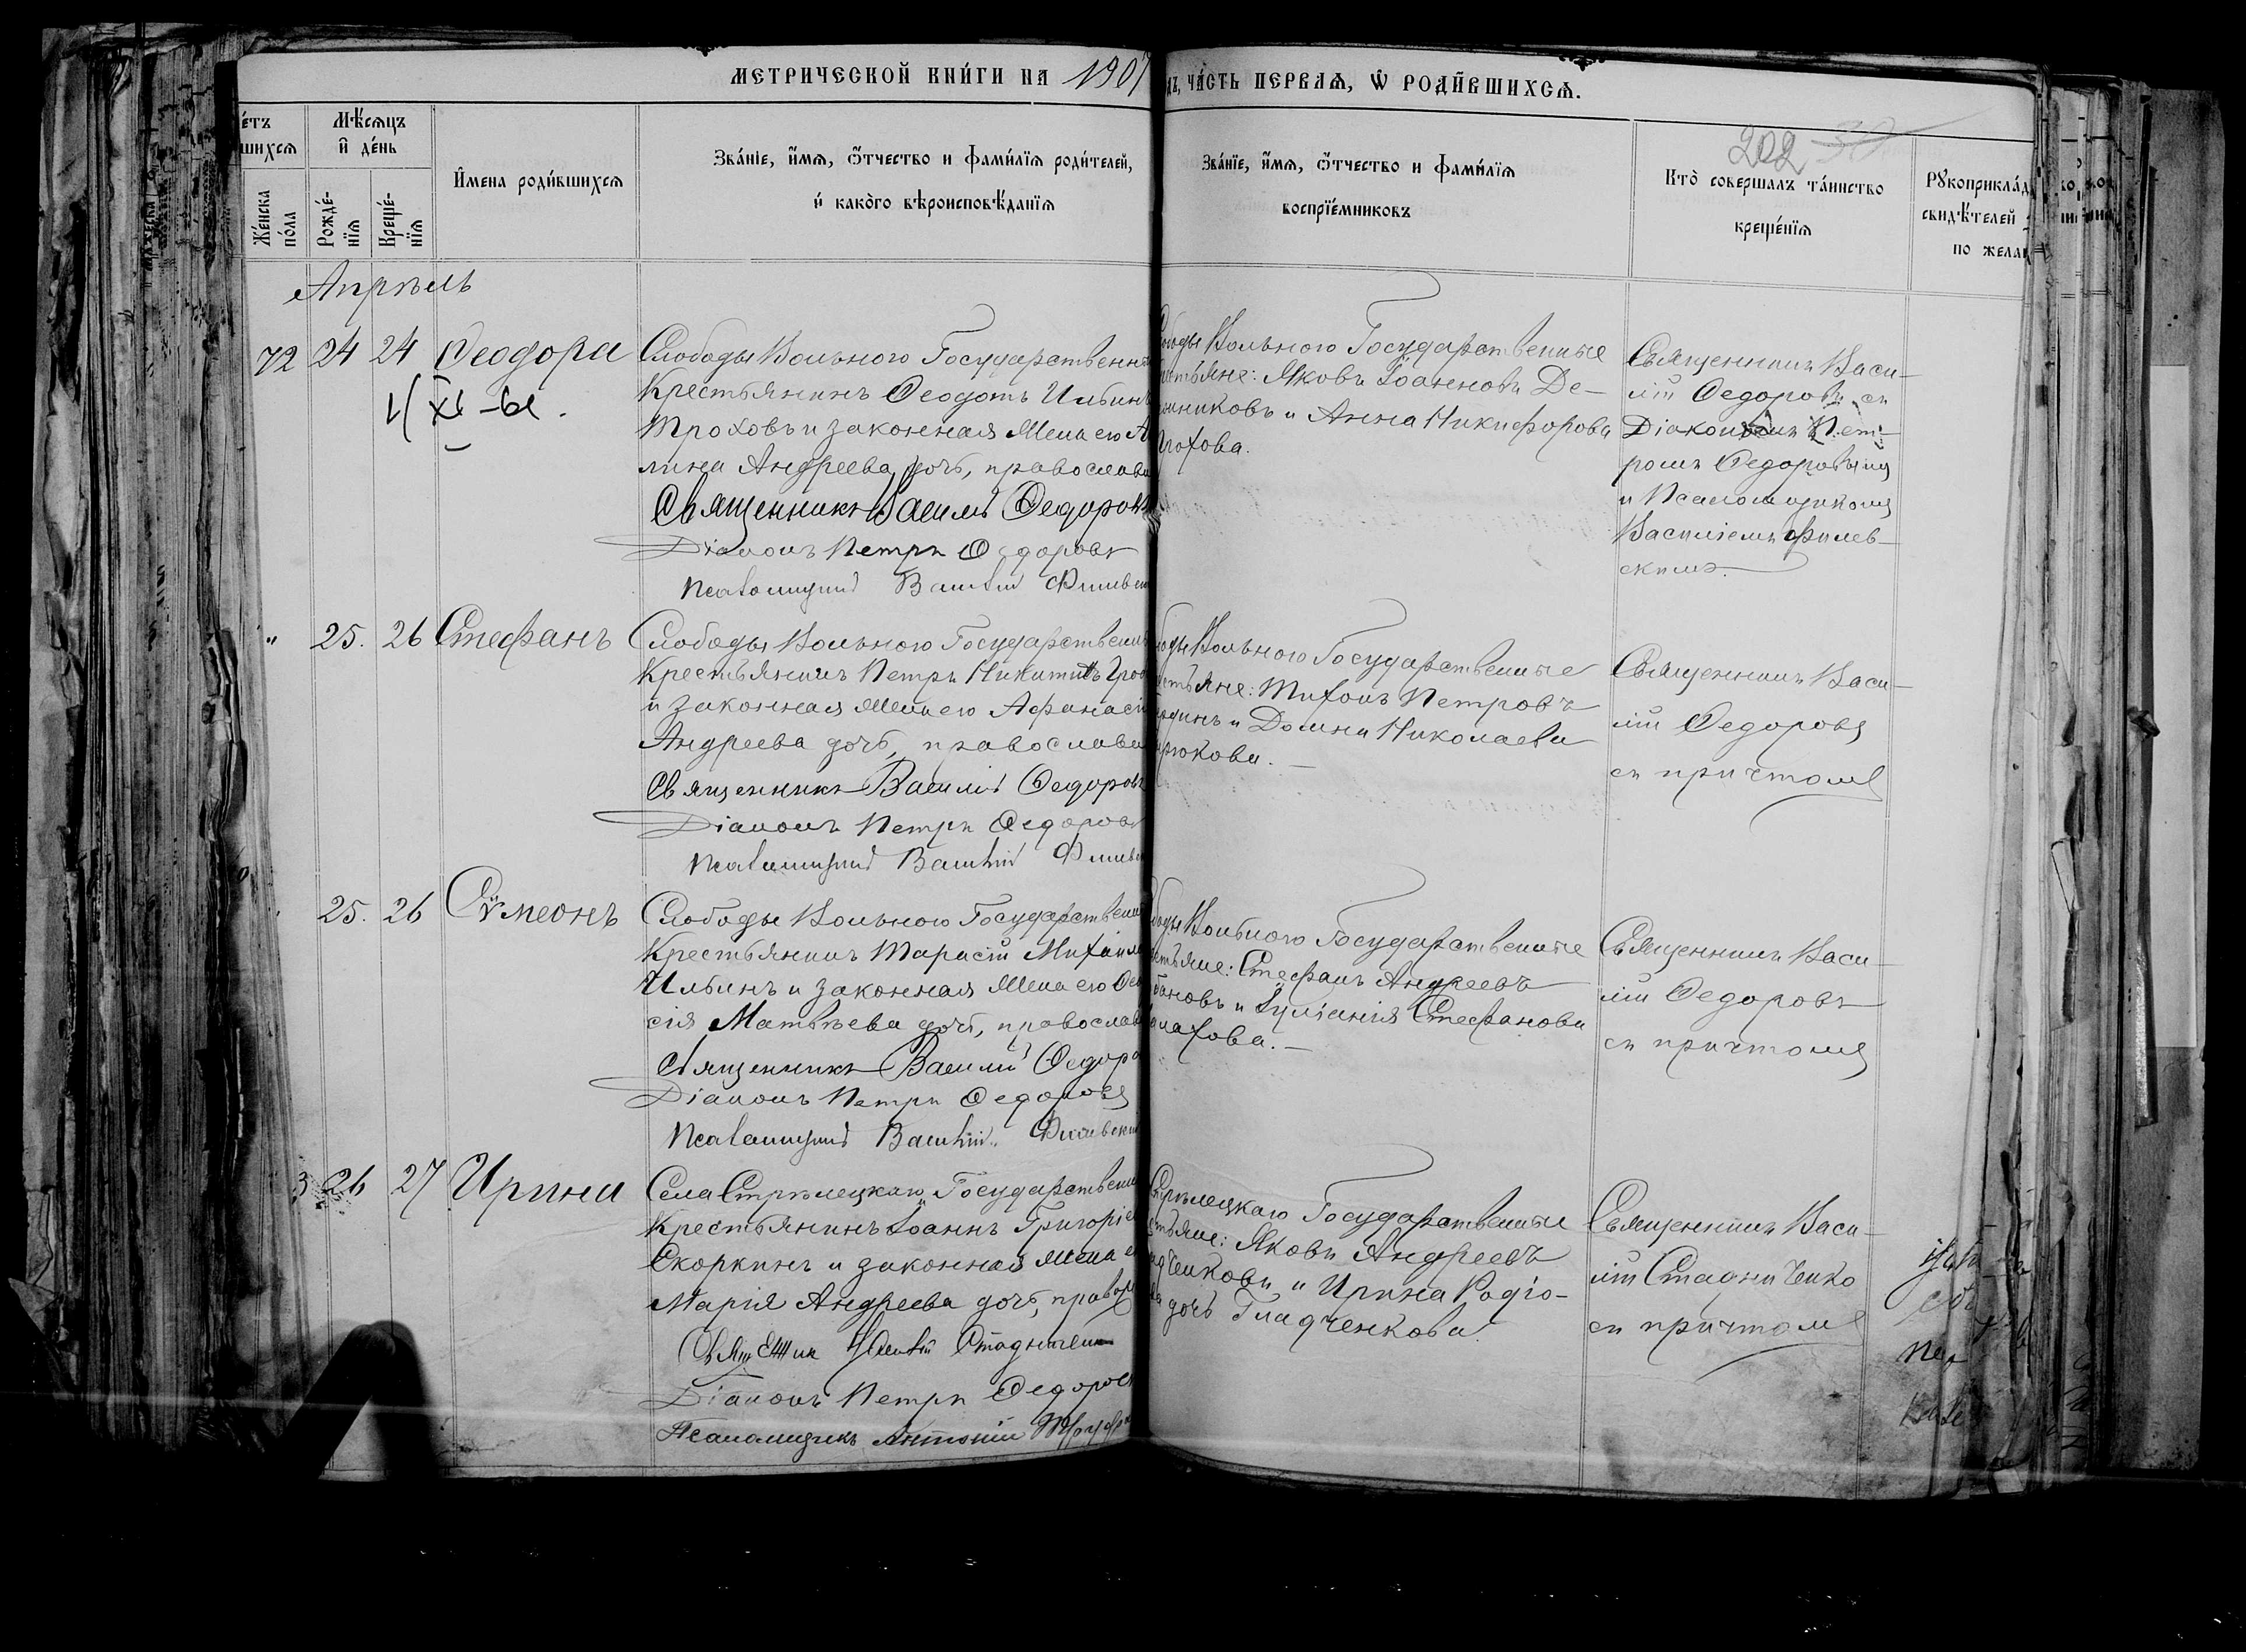 МЕТРИЧЕСКОЙ КНИ́ГИ НА 1907
ЧА́СТЬ ПЕРВАѦ, Ѡ҆ РОДИ́ВШИХСѦ.
202 30
Мѣ́сѧцъ и҆ де́нь
Же́нска по́ла
Рожде́нїѧ
Креще́нїѧ
И҆мена роди́вшихсѧ
Зва́нїе, и҆́мѧ, ѻ҆́тчество и фами́лїѧ роди́телей,
и҆ како́го вѣроисповѣ́данїѧ
Зва́нїе, и҆́мѧ, ѻ҆́тчество и фами́лїѧ
воспрїе́мниковъ
Кто̀ совершалъ та́инство
креще́нїѧ
свидѣ́телей
по
Апрѣль
72 24 24 Ѳеодора
Слободы Вольнаго Государственн
Крестьянинъ Ѳеодотъ Ильинъ
Троховъ и законная жена его А
лина Андреева дочь, православн
Священникъ Василій Ѳедоровъ
Діаконъ Петръ Ѳедоровъ
Псаломщикъ Василій Филевск
Вольнаго Государственные
Яковъ Іоанновъ Де-
никовъ и Анна Никифорова
Трохова.
Священникъ Васи-
лій Ѳедоровъ съ
Діакономъ Пет-
ромъ Ѳедоровымъ
и Псаломщикомъ
Василіемъ Филев-
скимъ.
" 25. 26 Стефанъ
Слободы Вольнаго Государственн
Крестьянинъ Петръ Никитинъ
и законная жена его Афанас
Андреева дочь, православн
Священникъ Василій Ѳедоровъ
Діаконъ Петръ Ѳедоровъ
Псаломщикъ Василій Филевск
Вольнаго Государственные
Тихонъ Петровъ
и Домна Николаева
рюкова.
Священникъ Васи-
лій Ѳедоровъ
съ причтомъ
25. 26 Сѵмеонъ
Слободы Вольнаго Государственн
Крестьянинъ Тарасій Михаил
Ильинъ и законная жена его Ѳео
сія Матвѣева дочь, православ
Священникъ Василій Ѳедоро
Діаконъ Петръ Ѳедоровъ
Псаломщикъ Василій Филевскій
Вольнаго Государственные
Стефанъ Андреевъ
бановъ и Іуліанія Стефанова
лахова.
Священникъ Васи-
лій Ѳедоровъ
съ причтомъ
3 26 27 Ирина
Села Стрѣлецкаго Государственн
Крестьянинъ Іоаннъ Григоріе
Скоркинъ и законная жена е
Марія Андреева дочь, правосл
Священник Василій Стадниченко
Діаконъ Петръ Ѳедоровъ
Псаломщикъ Антоній
Стрѣлецкаго Государственные
Яковъ Андреевъ
дченковъ и Ирина Родіо-
дочь Гладченкова.
Священникъ Васи-
лій Стадниченко
съ причтомъ